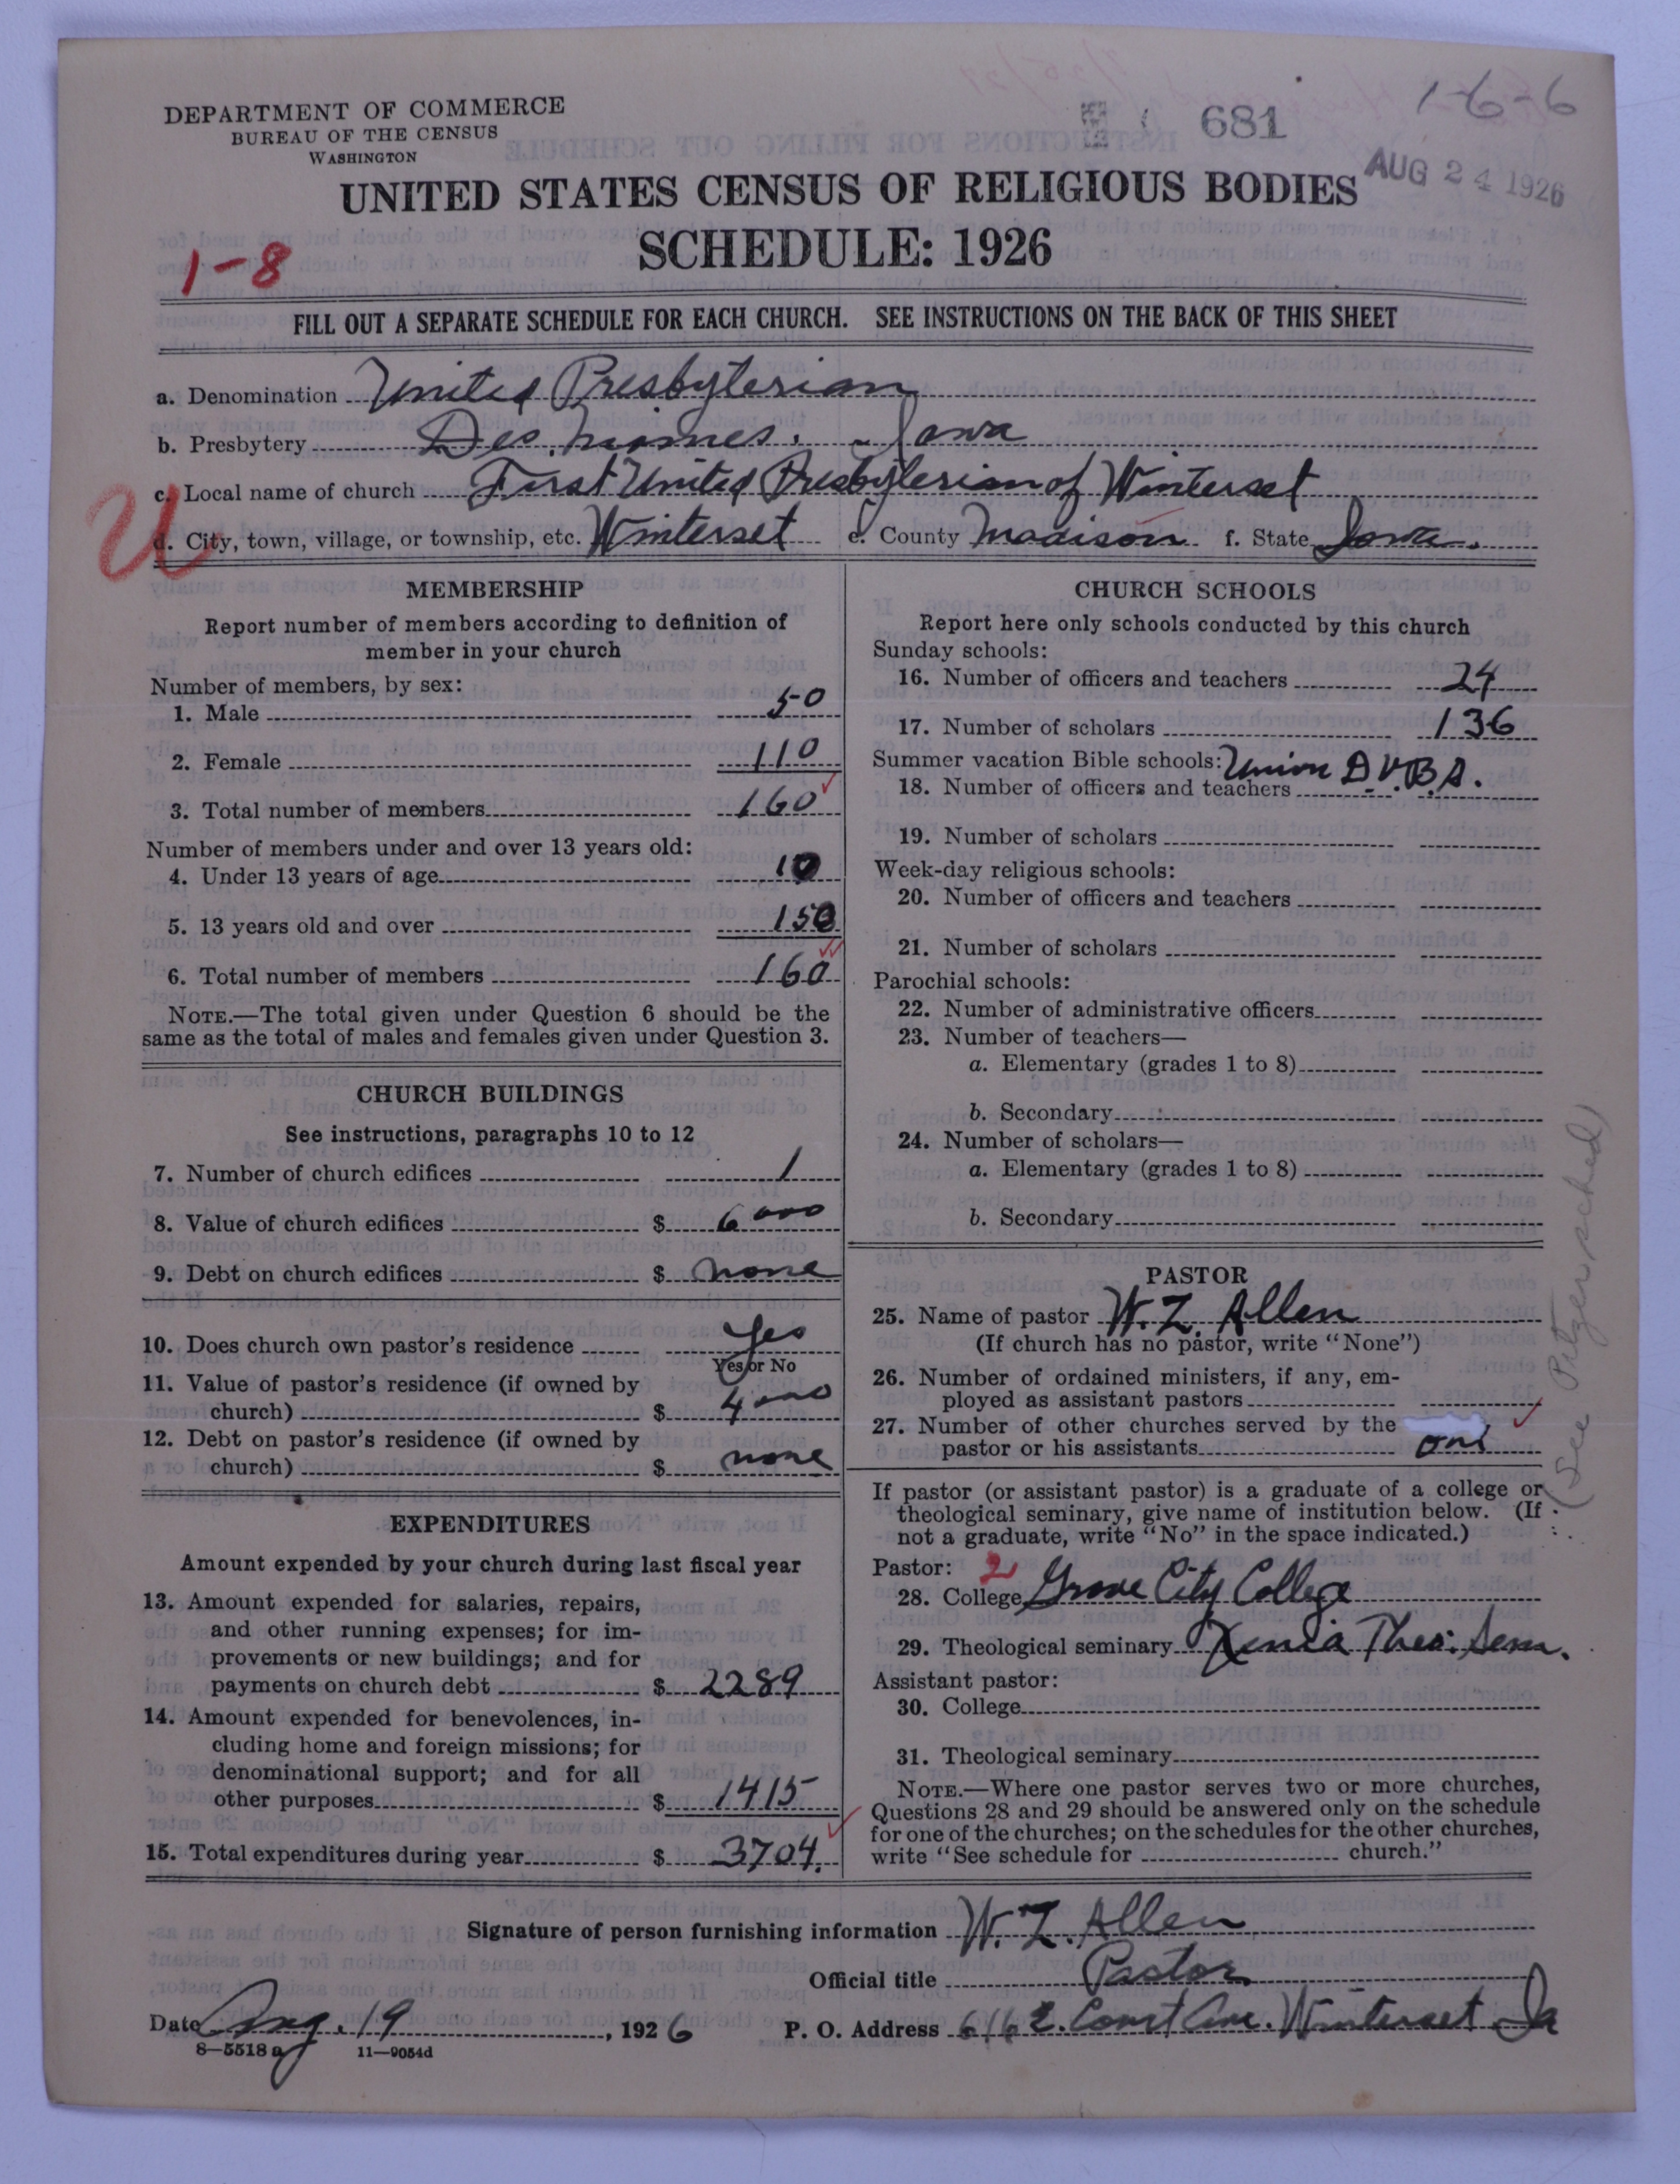 DEPARTMENT OF COMMERCE
BUREAU OF THE CENSUS
WASHINGTON
681
1-6-6
AUG 24 1926
UNITED STATES CENSUS OF RELIGIOUS BODIES
SCHEDULE: 1926
1-8
FILL OUT A SEPARATE SCHEDULE FOR EACH CHURCH. SEE INSTRUCTIONS ON THE BACK OF THIS SHEET
a. Denomination United Presbyterian
b. Presbytery Des Moines. - Iowa
c. Local name of church First United Presbyterian of Winterset
U
d. City, town, village, or township, etc. Winterset e. County Madison f. State Iowa.
MEMBERSHIP
Report number of members according to definition of
member in your church
Number of members, by sex:
1. Male 50
2. Female 110
3. Total number of members 160
Number of members under and over 13 years old:
4. Under 13 years of age 10
5. 13 years old and over 150
6. Total number of members 160
NOTE.—The total given under Question 6 should be the
same as the total of males and females given under Question 3.
CHURCH BUILDINGS
See instructions, paragraphs 10 to 12
7. Number of church edifices 1
8. Value of church edifices $ 6000
9. Debt on church edifices $ none
10. Does church own pastor's residence Yes
Yes or No
11. Value of pastor's residence (if owned by
church) $ 4000
12. Debt on pastor's residence (if owned by
church) $ none
EXPENDITURES
Amount expended by your church during last fiscal year
13. Amount expended for salaries, repairs,
and other running expenses; for im-
provements or new buildings; and for
payments on church debt $ 2289
14. Amount expended for benevolences, in-
cluding home and foreign missions; for
denominational support; and for all
other purposes $ 1415
15. Total expenditures during year $ 3704.
CHURCH SCHOOLS
Report here only schools conducted by this church
Sunday schools:
16. Number of officers and teachers 24
17. Number of scholars 136
Summer vacation Bible schools: Union D.V.B.S.
18. Number of officers and teachers
19. Number of scholars
Week-day religious schools:
20. Number of officers and teachers
21. Number of scholars
Parochial schools:
22. Number of administrative officers
23. Number of teachers—
a. Elementary (grades 1 to 8)
b. Secondary
24. Number of scholars—
a. Elementary (grades 1 to 8)
b. Secondary
PASTOR
25. Name of pastor W. Z. Allen
(If church has no pastor, write "None")
26. Number of ordained ministers, if any, em-
ployed as assistant pastors
27. Number of other churches served by the
pastor or his assistants one
(See Pitzer sched)
If pastor (or assistant pastor) is a graduate of a college or
theological seminary, give name of institution below. (If
not a graduate, write "No" in the space indicated.)
Pastor: 2
28. College Grove City College
29. Theological seminary Xenia Theo. Sem.
Assistant pastor:
30. College
31. Theological seminary
NOTE.—Where one pastor serves two or more churches,
Questions 28 and 29 should be answered only on the schedule
for one of the churches; on the schedules for the other churches,
write "See schedule for church."
Signature of person furnishing information W. Z. Allen
Official title Pastor
Date Aug. 19, 1926 P. O. Address 616 E. Court Ave. Winterset Ia
8—5518 a 11—9054d